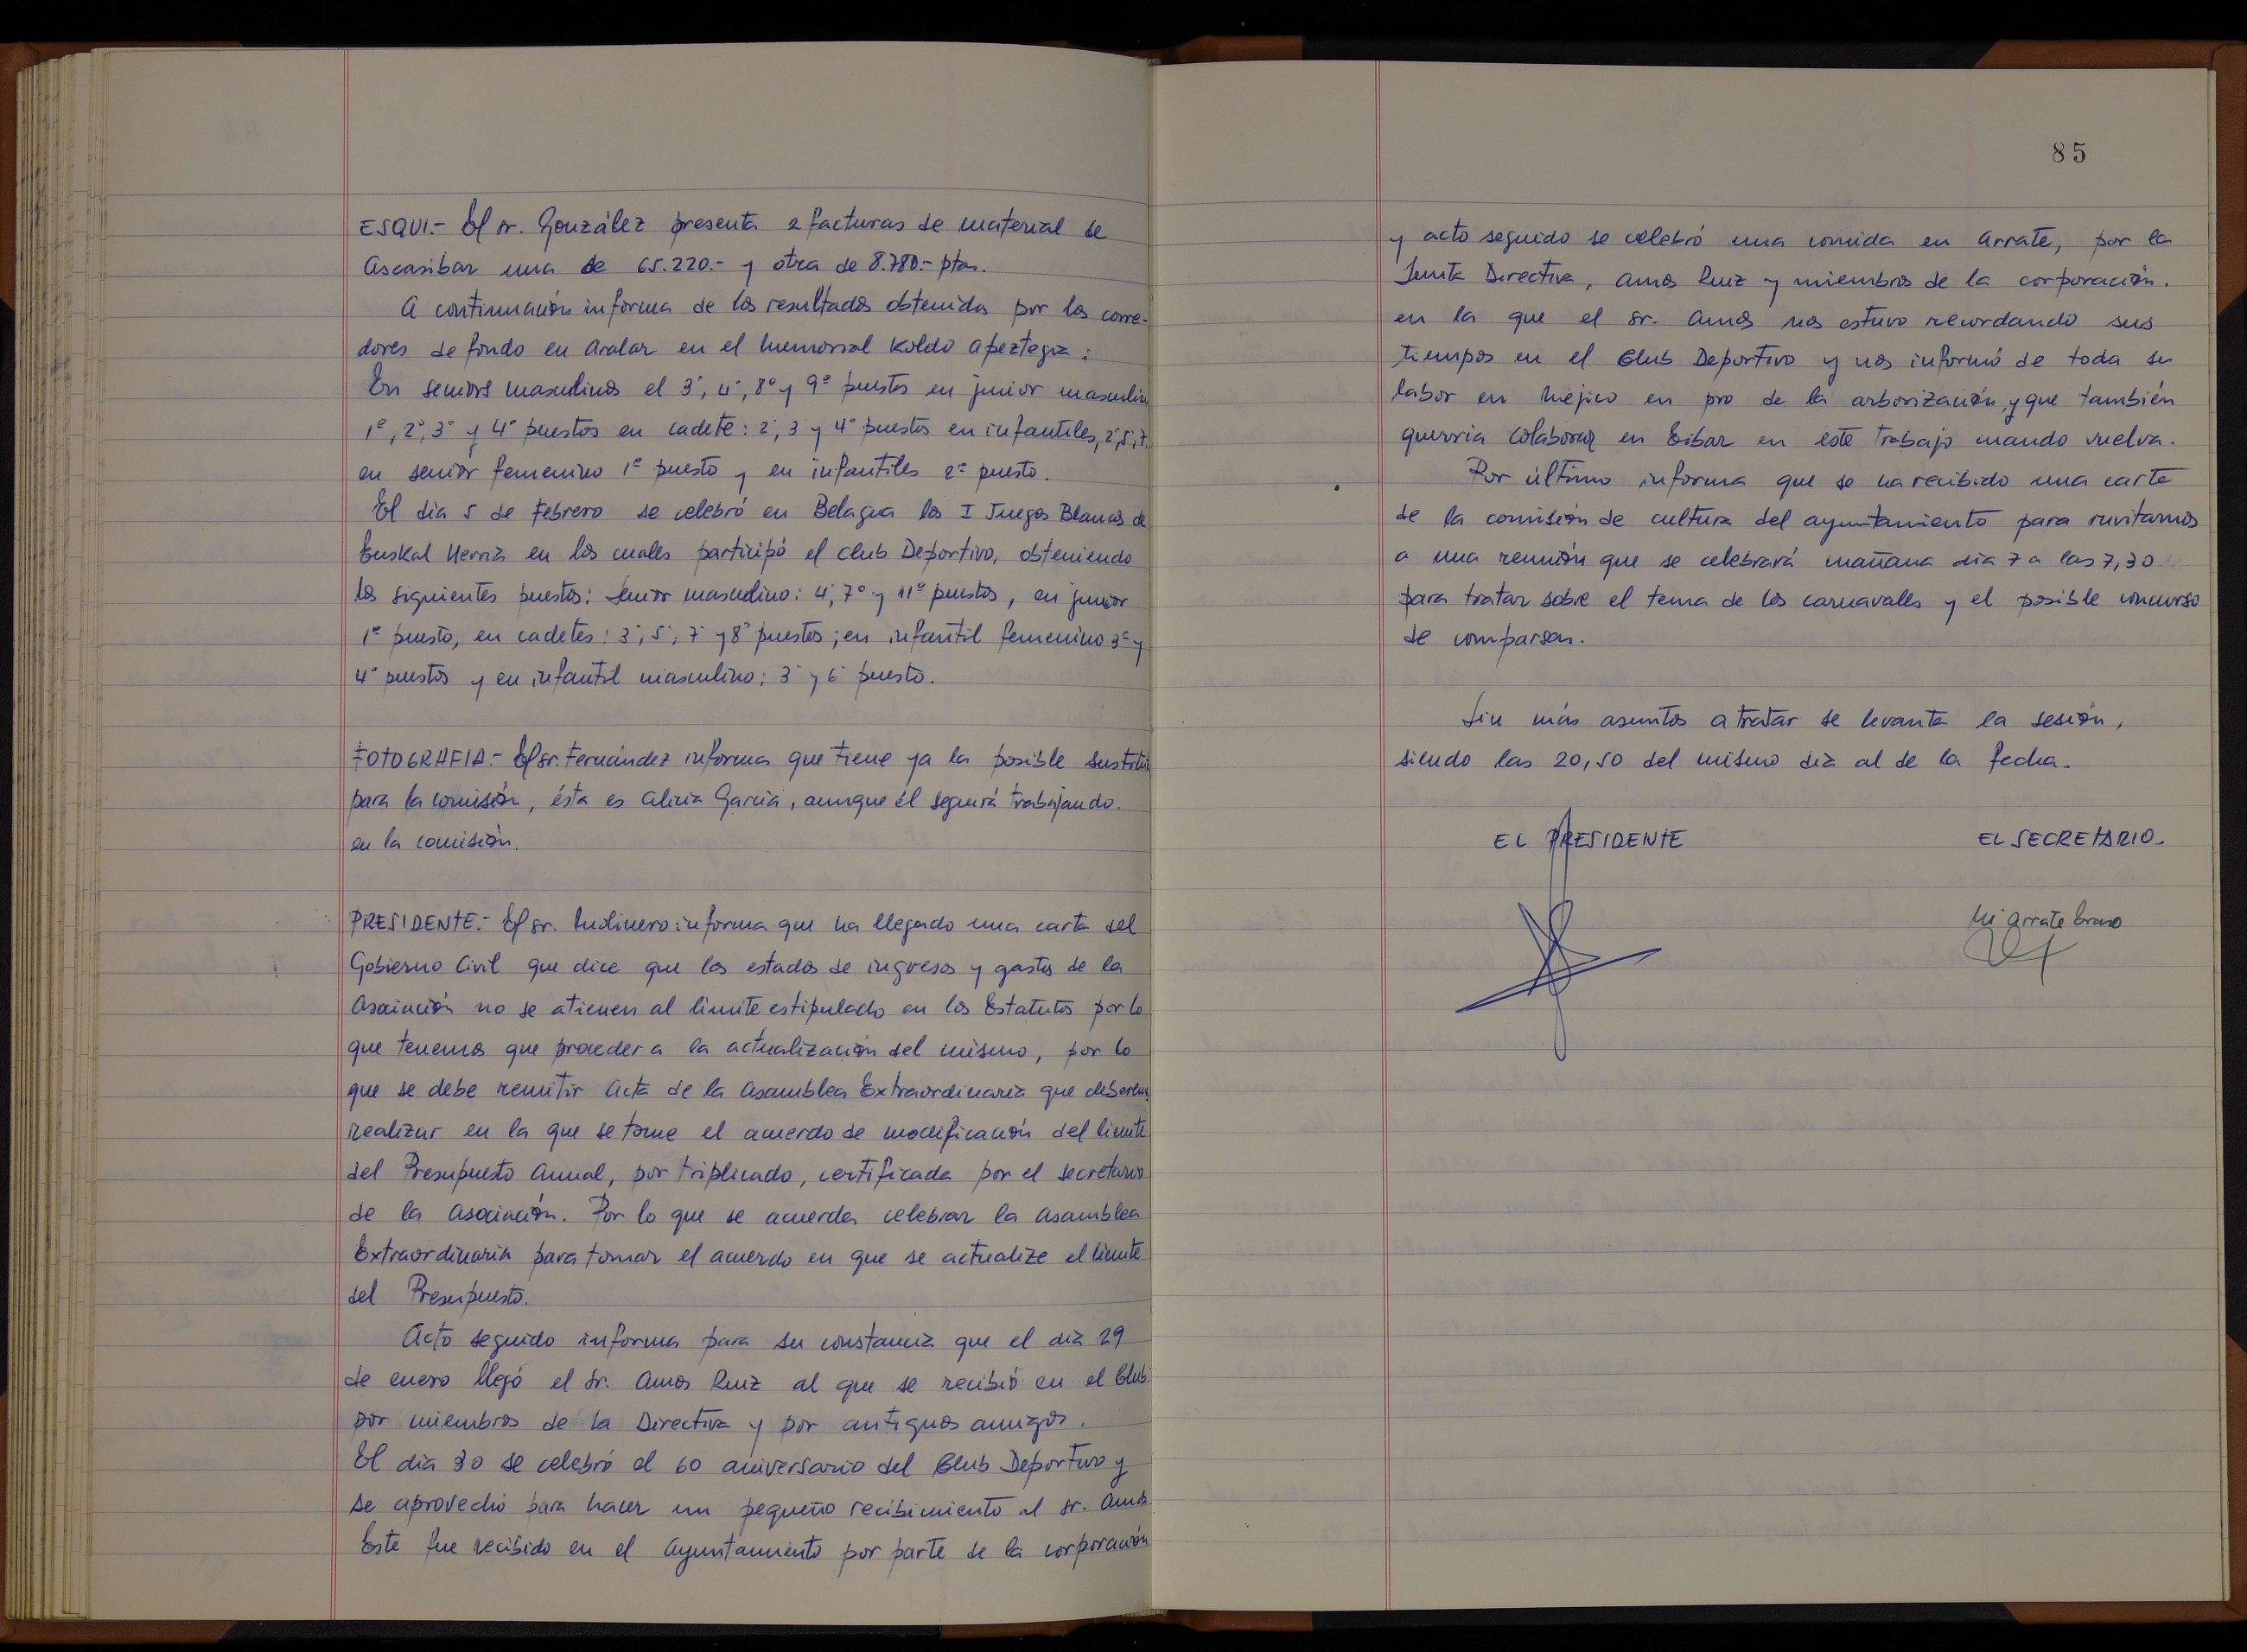 ESQUI.- El sr. González presenta 2 facturas de material de
Ascasibar una de 65.220.- y otra de 8.780.- ptas.
A continuación informa de los resultados obtenidos por los corre-
dores de fondo en Aralar en el memorial Koldo Apeztegia:
En seniors masculinos el 3º, 4º, 8º y 9º puestos en junior masculin
1º, 2º, 3º y 4º puestos en cadete: 2º, 3º y 4º puestos en infantiles, 2º, 5º, 7º
en senior femenino 1º puesto y en infantiles 2º puesto.
El dia 5 de Febrero se celebró en Belagua los I Juegos Blancos de
Euskal Herria en los cuales participó el club Deportivo, obteniendo
los siguientes puestos: Senior masculino: 4º, 7º y 11º puestos, en junior
1º puesto, en cadetes: 3º, 5º, 7º y 8º puestos; en infantil femenino 3º y
4º puestos y en infantil masculino: 3º y 6º puesto.
FOTOGRAFIA.- El sr. Fernández informa que tiene ya la posible
para la comisión, ésta es Alicia García, aunque él seguirá trabajando.
en la comisión.
PRESIDENTE.- El sr. Mulinero informa que ha llegado una carta del
Gobierno Civil que dice que los estados de ingresos y gastos de la
Asociación no se atienen al limite estipulado en los Estatutos por lo
que tenemos que proceder a la actualización del mismo, por lo
que se debe remitir Acta de la Asamblea Extraordinaria que deberem
realizar en la que se tome el acuerdo de modificación del limite
del Presupuesto Anual, por triplicado, certificada por el secretario
de la Asociación. Por lo que se acuerda celebrar la Asamblea
Extraordinaria para tomar el acuerdo en que se actualize el limite
del Presupuesto.
Acto seguido informa para su constancia que el dia 29
de enero llegó el Sr. Amos Ruiz al que se recibió en el Club
por miembros de la Directiva y por antiguos amigos.
El dia 30 se celebró el 60 aniversario del Club Deportivo y
se aprovechó para hacer un pequeño recibimiento al sr. Amos
Este fue recibido en el Ayuntamiento por parte de la corporación
85
y acto seguido se celebró una comida en Arrate, por la
Junta Directiva, Amos Ruiz y miembros de la corporación.
en la que el sr. Amos nos estuvo recordando sus
tiempos en el Club Deportivo y nos informó de toda su
labor en Méjico en pro de la arborización, y que también
querria colaborar en Eibar en este trabajo cuando vuelva.
Por último informa que se ha recibido una carta
de la comisión de cultura del ayuntamiento para invitarnos
a una reunión que se celebrará mañana dia 7 a las 7,30
para tratar sobre el tema de los carnavales y el posible concurso
de comparsas.
Sin más asuntos a tratar se levanta la sesión,
siendo las 20,50 del mismo dia al de la fecha.
EL PRESIDENTE
EL SECRETARIO.
Mi Arrate